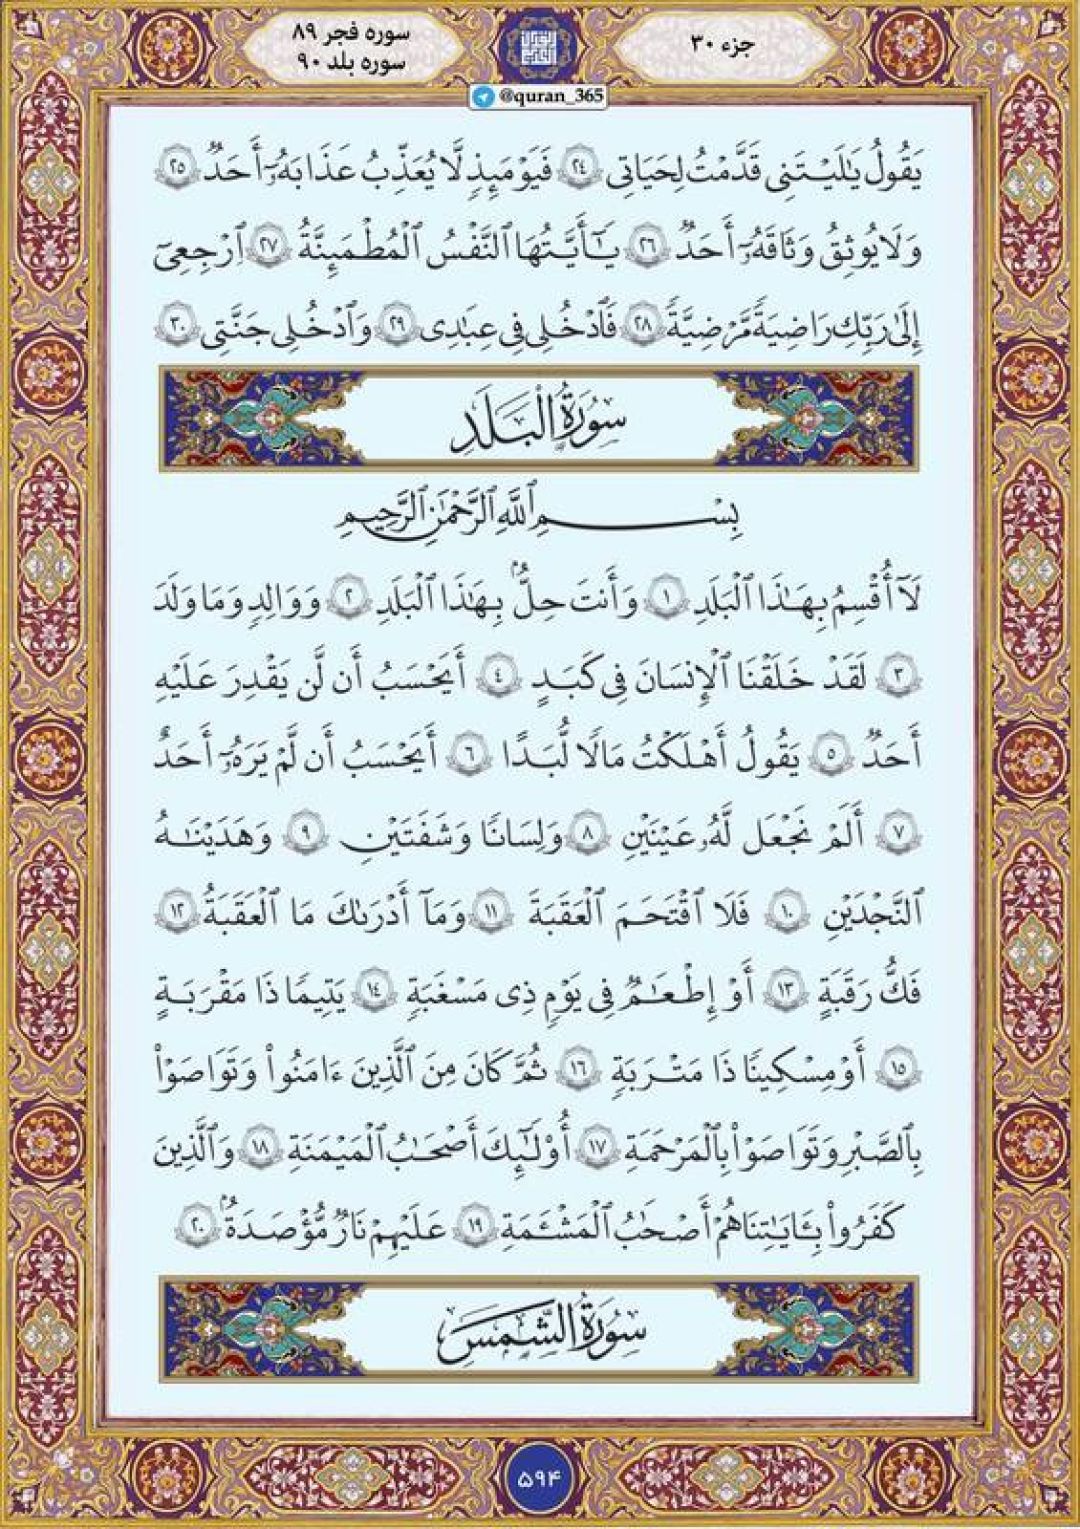 جزء ۳۰
سوره فجر ۸۹
سوره بلد ۹۰
@quran_365
يَقُولُ يَٰلَيْتَنِي قَدَّمْتُ لِحَيَاتِي ٢٤ فَيَوْمَئِذٍ لَّا يُعَذِّبُ عَذَابَهُۥٓ أَحَدٌ ٢٥
وَلَا يُوثِقُ وَثَاقَهُۥٓ أَحَدٌ ٢٦ يَٰٓأَيَّتُهَا ٱلنَّفْسُ ٱلْمُطْمَئِنَّةُ ٢٧ ٱرْجِعِيٓ
إِلَىٰ رَبِّكِ رَاضِيَةً مَّرْضِيَّةً ٢٨ فَٱدْخُلِي فِي عِبَٰدِي ٢٩ وَٱدْخُلِي جَنَّتِي ٣٠
سُورَةُ الْبَلَدِ
بِسْمِ ٱللَّهِ ٱلرَّحْمَٰنِ ٱلرَّحِيمِ
لَآ أُقْسِمُ بِهَٰذَا ٱلْبَلَدِ ١ وَأَنتَ حِلٌّۢ بِهَٰذَا ٱلْبَلَدِ ٢ وَوَالِدٍ وَمَا وَلَدَ
٣ لَقَدْ خَلَقْنَا ٱلْإِنسَانَ فِي كَبَدٍ ٤ أَيَحْسَبُ أَن لَّن يَقْدِرَ عَلَيْهِ
أَحَدٌ ٥ يَقُولُ أَهْلَكْتُ مَالًا لُّبَدًا ٦ أَيَحْسَبُ أَن لَّمْ يَرَهُۥٓ أَحَدٌ
٧ أَلَمْ نَجْعَل لَّهُۥ عَيْنَيْنِ ٨ وَلِسَانًا وَشَفَتَيْنِ ٩ وَهَدَيْنَٰهُ
ٱلنَّجْدَيْنِ ١٠ فَلَا ٱقْتَحَمَ ٱلْعَقَبَةَ ١١ وَمَآ أَدْرَىٰكَ مَا ٱلْعَقَبَةُ ١٢
فَكُّ رَقَبَةٍ ١٣ أَوْ إِطْعَٰمٌ فِي يَوْمٍ ذِي مَسْغَبَةٍ ١٤ يَتِيمًا ذَا مَقْرَبَةٍ
١٥ أَوْ مِسْكِينًا ذَا مَتْرَبَةٍ ١٦ ثُمَّ كَانَ مِنَ ٱلَّذِينَ ءَامَنُواْ وَتَوَاصَوْاْ
بِٱلصَّبْرِ وَتَوَاصَوْاْ بِٱلْمَرْحَمَةِ ١٧ أُوْلَٰٓئِكَ أَصْحَٰبُ ٱلْمَيْمَنَةِ ١٨ وَٱلَّذِينَ
كَفَرُواْ بِـَٔايَٰتِنَا هُمْ أَصْحَٰبُ ٱلْمَشْـَٔمَةِ ١٩ عَلَيْهِمْ نَارٌ مُّؤْصَدَةٌۢ ٢٠
سُورَةُ الشَّمْسِ
۵۹۴